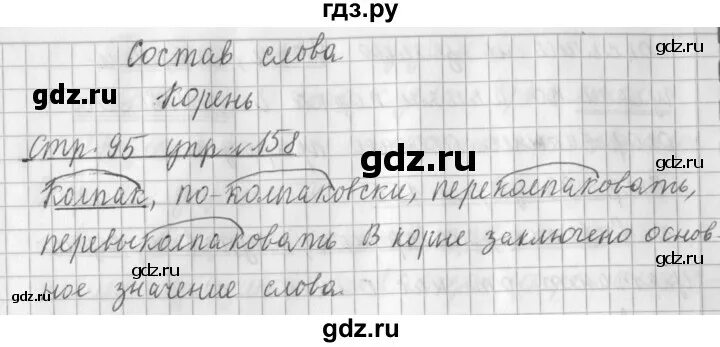 гдз.ру
Состав слова.
Корень.
Стр. 95 упр. 158
Колпак, по-колпаковски, переколпаковать,
перевыколпаковать В корне заключено основ-
ное значение слова.
gdz.ru
gdz.ru
gdz.ru
gdz.ru
gdz.ru
gdz.ru
gdz.ru
gdz.ru
gdz.ru
gdz.ru
gdz.ru